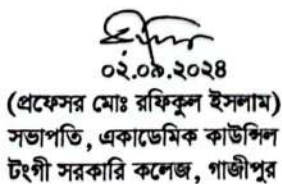 ০২.০৯.২০২৪
(প্রফেসর মোঃ রফিকুল ইসলাম)
সভাপতি, একাডেমিক কাউন্সিল
টংগী সরকারি কলেজ, গাজীপুর